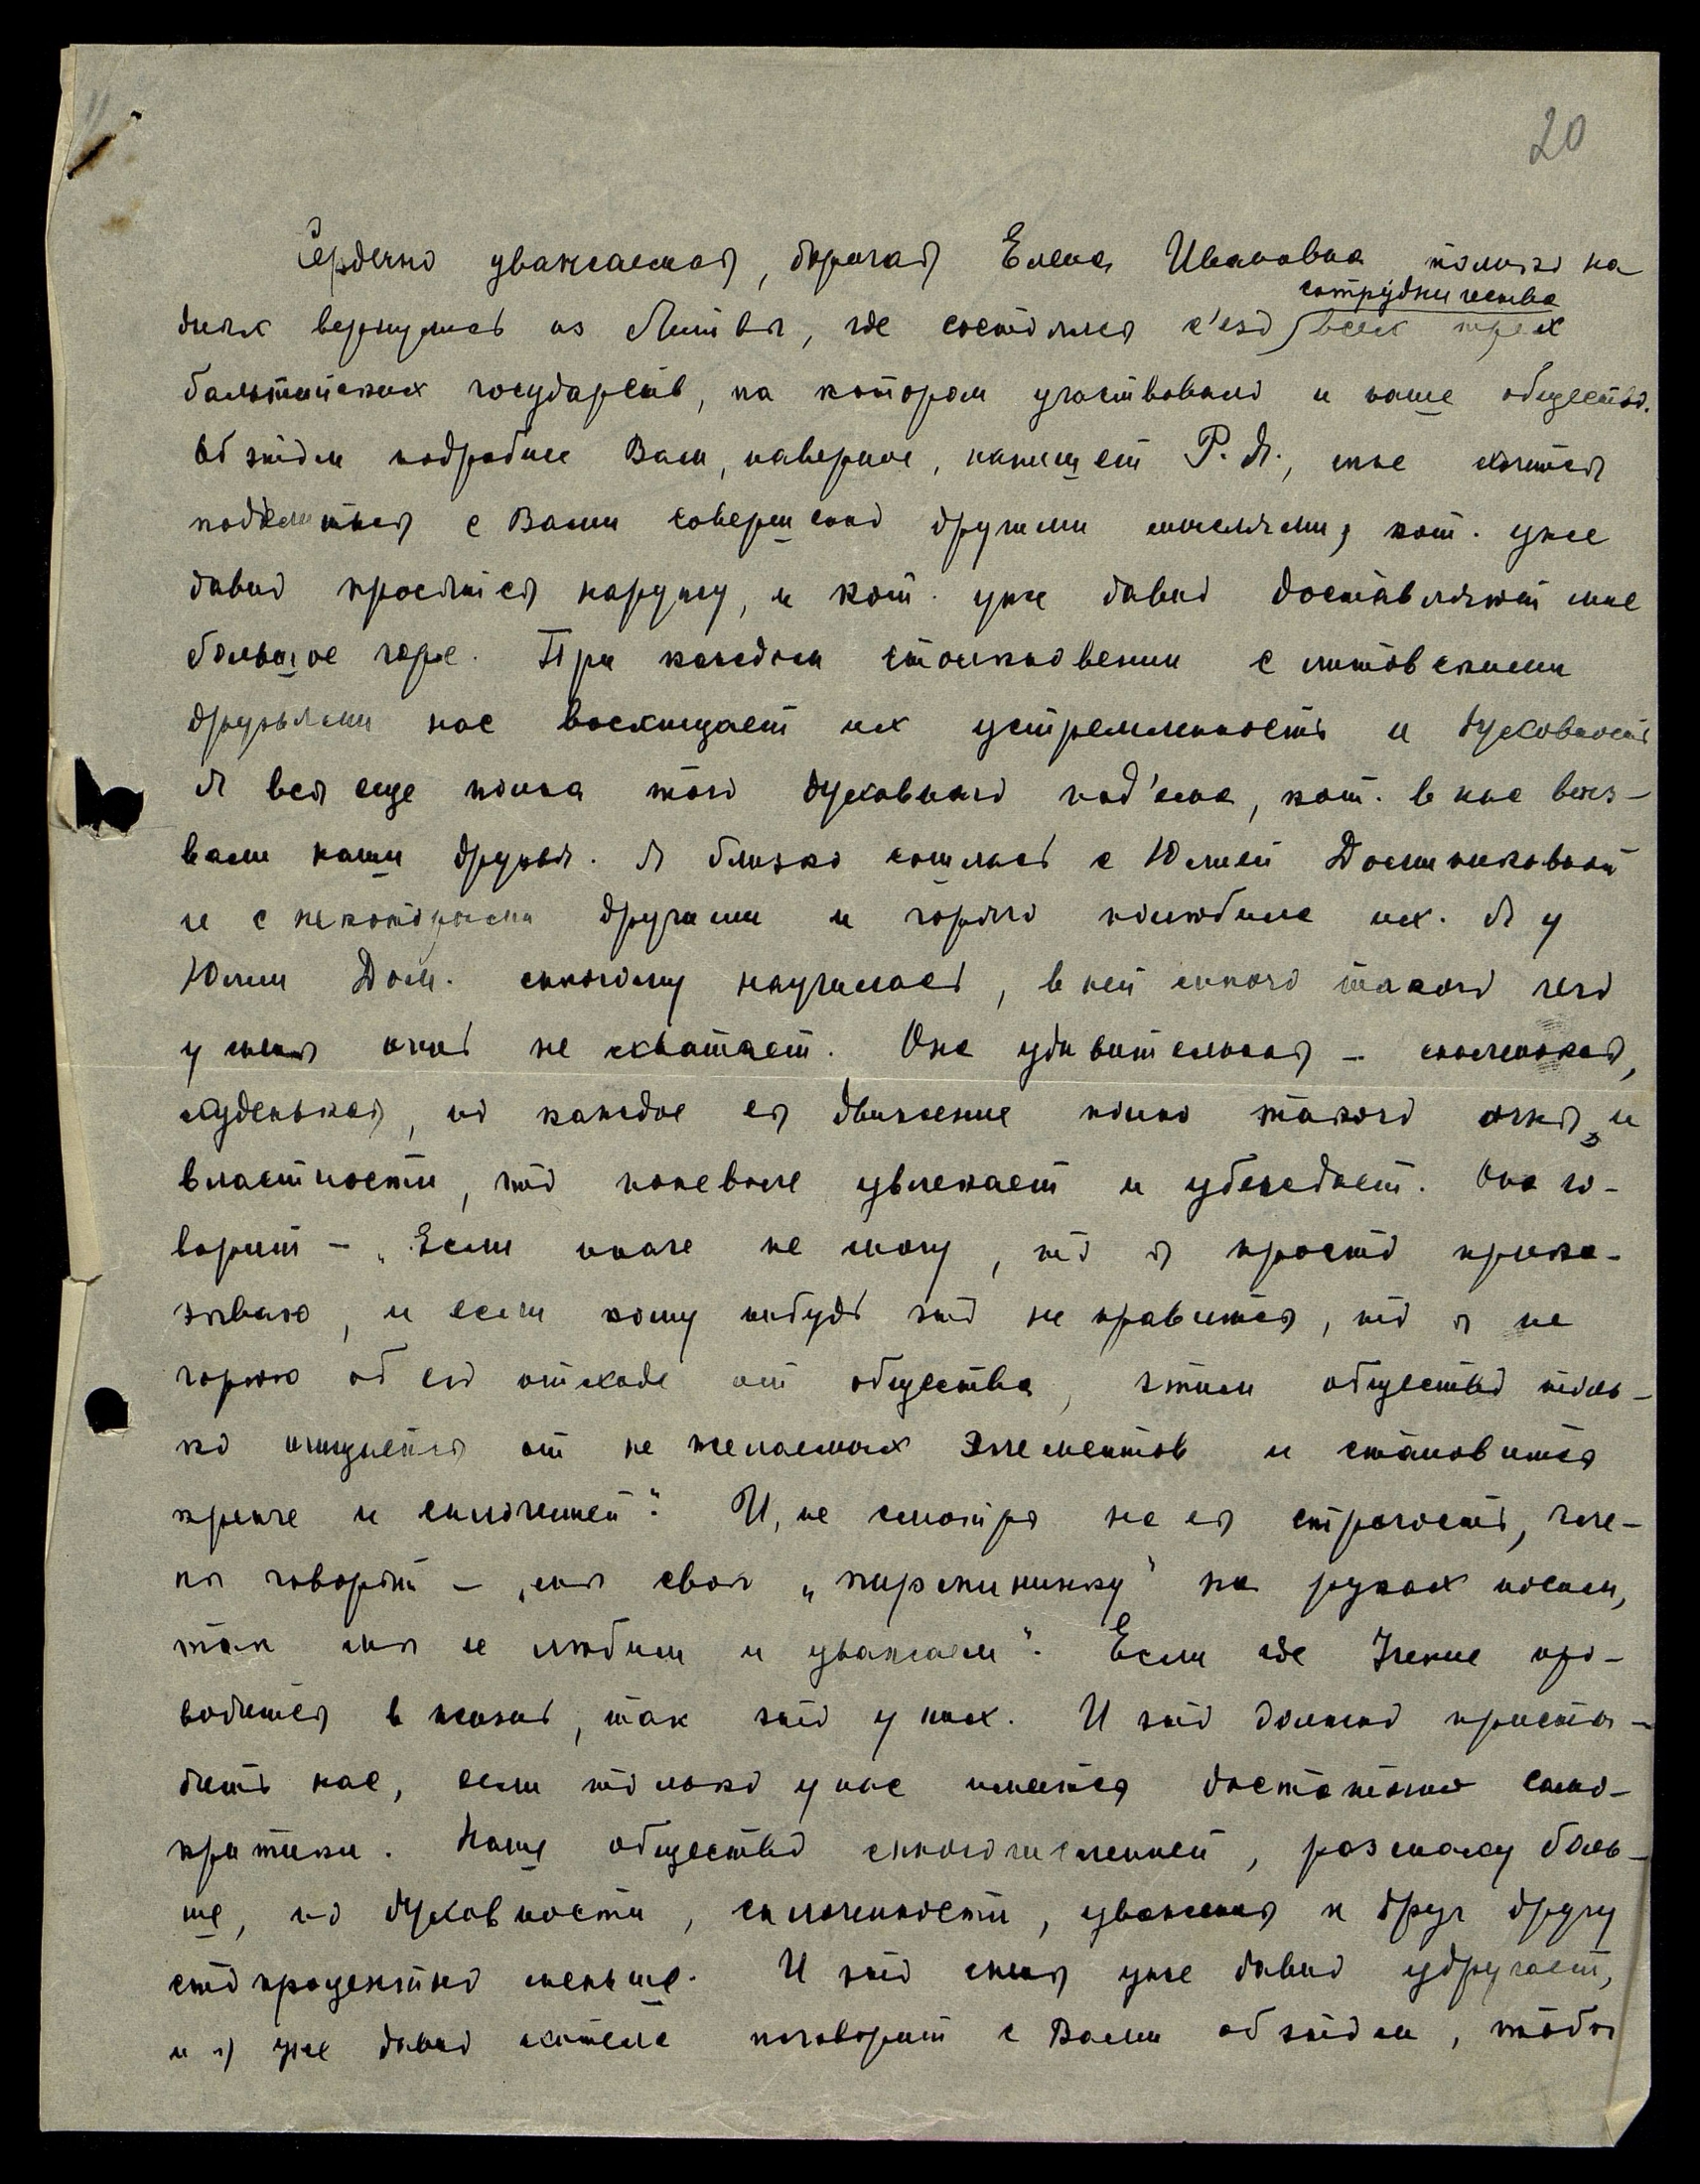 20
Сердечно уважаемая, дорогая Елена Ивановна, только на
сотрудничества
днях вернулись из Литвы, где состоялся с'езд всех трех
балтийских государств, на котором участвовало и наше общество.
Об этом подробнее Вам, наверное, напишет Р. Я., мне хочется
поделиться с Вами совершенно другими мыслями, кот. уже
давно просятся наружу, и кот. уже давно доставляют мне
большое горе. При каждом столкновении с литовскими
друзьями нас восхищает их устремленность и духовность
Я вся еще полна того духовного под'ема, кот. в нас выз-
вали наши друзья. Я близко сошлась с Юлией Доминиковной
и с некоторыми другими и горячо полюбила их. Я у
Юлии Дом. многому научилась, в ней много такого чего
у меня очень не хватает. Она удивительная – маленькая,
худенькая, но каждое ея движение полно такого огня и
властности, что поневоле увлекает и убеждает. Она го-
ворит – „Если иначе не могу, то я просто прика-
зываю, и если кому нибудь это не нравится, то я не
горюю об его отходе от общества, этим общество толь-
ко очищается от не желаемых элементов и становится
крепче и сплоченней". И, не смотря на ея строгость, чле-
ны говорят – „мы свою „пирмининку" на руках носим,
так мы ее любим и уважаем". Если где Учение про-
водится в жизнь, так это у них. И это должно присты-
дить нас, если только у нас имеется достаточно само-
критики. Наше общество многочисленней, размаху боль-
ше, но духовности, сплоченности, уважения к друг другу
сто процентно меньше. И это меня уже давно удручает,
и я уже давно хотела поговорить с Вами об этом, чтобы